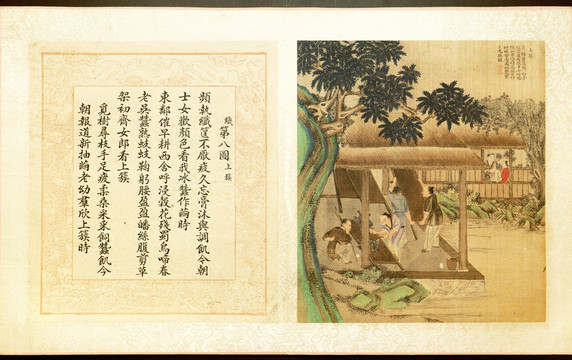 織 第八圖 上簇
頻執纖筐不厭疲久忘膏沐與調飢今朝
士女歡顏色看我冰蠶作繭時
東鄰催早耕西舍呼浸穀花殘蜀鳥啼春
老吳蠶熟蚑蚑鞠躬腰盈盈皤絲腹剪草
架初齊女郎看上簇
覓樹尋枝手足疲柔桑采采飼蠶飢今
朝報道新抽繭老幼羣欣上簇時